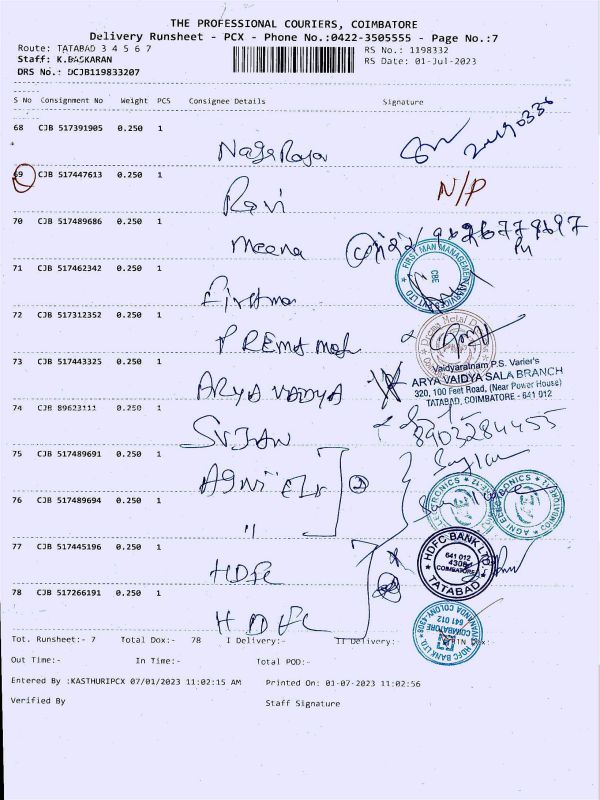 THE PROFESSIONAL COURIERS, COIMBATORE
Delivery Runsheet - PCX - Phone No.:0422-3505555 - Page No.:7
Route: TATABAD 3 4 5 6 7
RS No.: 1198332
Staff: K.BASKARAN
RS Date: 01-Jul-2023
DRS No.: DCJB119833207
S No Consignment No Weight PCS Consignee Details Signature
68 CJB 517391905 0.250 1
Nagaraja
69 CJB 517447613 0.250 1
Ravi N/P
70 CJB 517489686 0.250 1
Meena
FIRST MAN MANAGEMENT SERVICES PVT LTD
CBE
71 CJB 517462342 0.250 1
72 CJB 517312352 0.250 1
73 CJB 517443325 0.250 1
ARYA VAIDYA
Vaidyaratnam P.S. Varier's
ARYA VAIDYA SALA BRANCH
320, 100 Feet Road, (Near Power House)
TATABAD, COIMBATORE - 641 012
74 CJB 89623111 0.250 1
SUJAN 8903284455
75 CJB 517489691 0.250 1
Agni Ele 2
76 CJB 517489694 0.250 1
"
AGNI ELECTRONICS
COIMBATORE-12
77 CJB 517445196 0.250 1
HDFC
HDFC BANK LTD.
641 012
4308
COIMBATORE
TATABAD
78 CJB 517266191 0.250 1
HDFC
HDFC BANK LTD.
COIMBATORE
641 012
Tot. Runsheet:- 7 Total Dox:- 78 I Delivery:- II Delivery:-
Out Time:- In Time:- Total POD:-
Entered By :KASTHURIPCX 07/01/2023 11:02:15 AM Printed On: 01-07-2023 11:02:56
Verified By Staff Signature